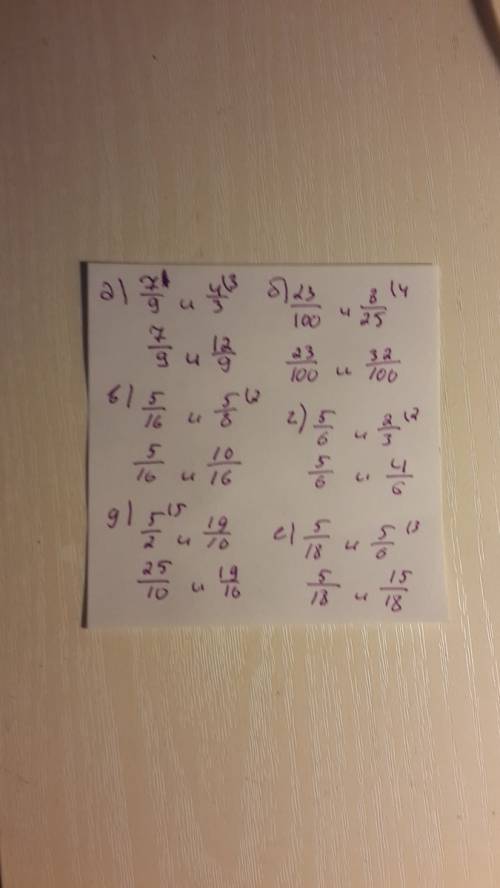 а) 7/9 и 4/3 \3
7/9 и 12/9
б) 23/100 и 8/25 \4
23/100 и 32/100
в) 5/16 и 5/8 \2
5/16 и 10/16
г) 5/6 и 2/3 \2
5/6 и 4/6
д) 5/2 \5 и 19/10
25/10 и 19/10
е) 5/18 и 5/6 \3
5/18 и 15/18